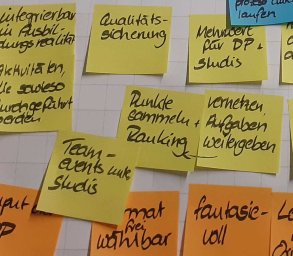 integrierbar
in Ausbil-
dungsrealität
Aktivitäten,
die sowieso
durchgeführt
werden
Qualitäts-
sicherung
Mehrwert
für DP +
Studis
laufen
Punkte
sammeln +
Ranking
vernetzen
Aufgaben
weitergeben
Team-
events unter
Studis
put
P
mat
frei
wählbar
fantasie-
voll